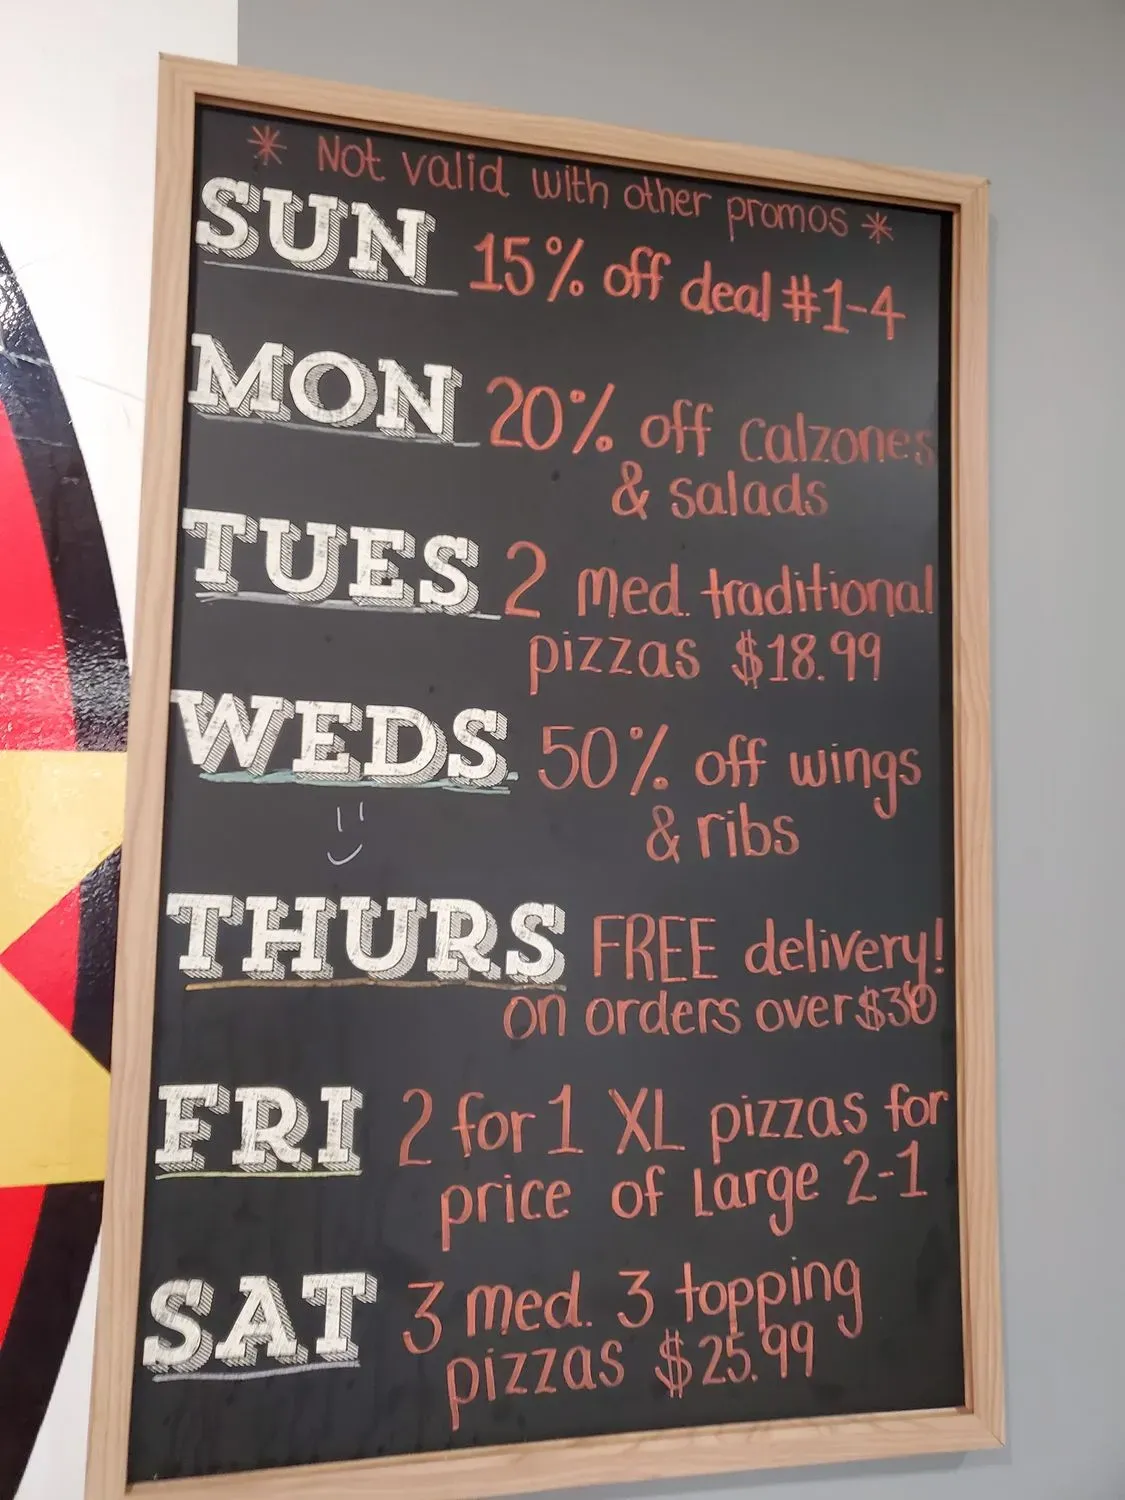 * Not valid with other promos *
SUN 15% off deal #1-4
MON 20% off calzones
& salads
TUES 2 med. traditional
pizzas $18.99
WEDS 50% off wings
& ribs
THURS FREE delivery!
on orders over $30
FRI 2 for 1 XL pizzas for
price of Large 2-1
SAT 3 med. 3 topping
pizzas $25.99